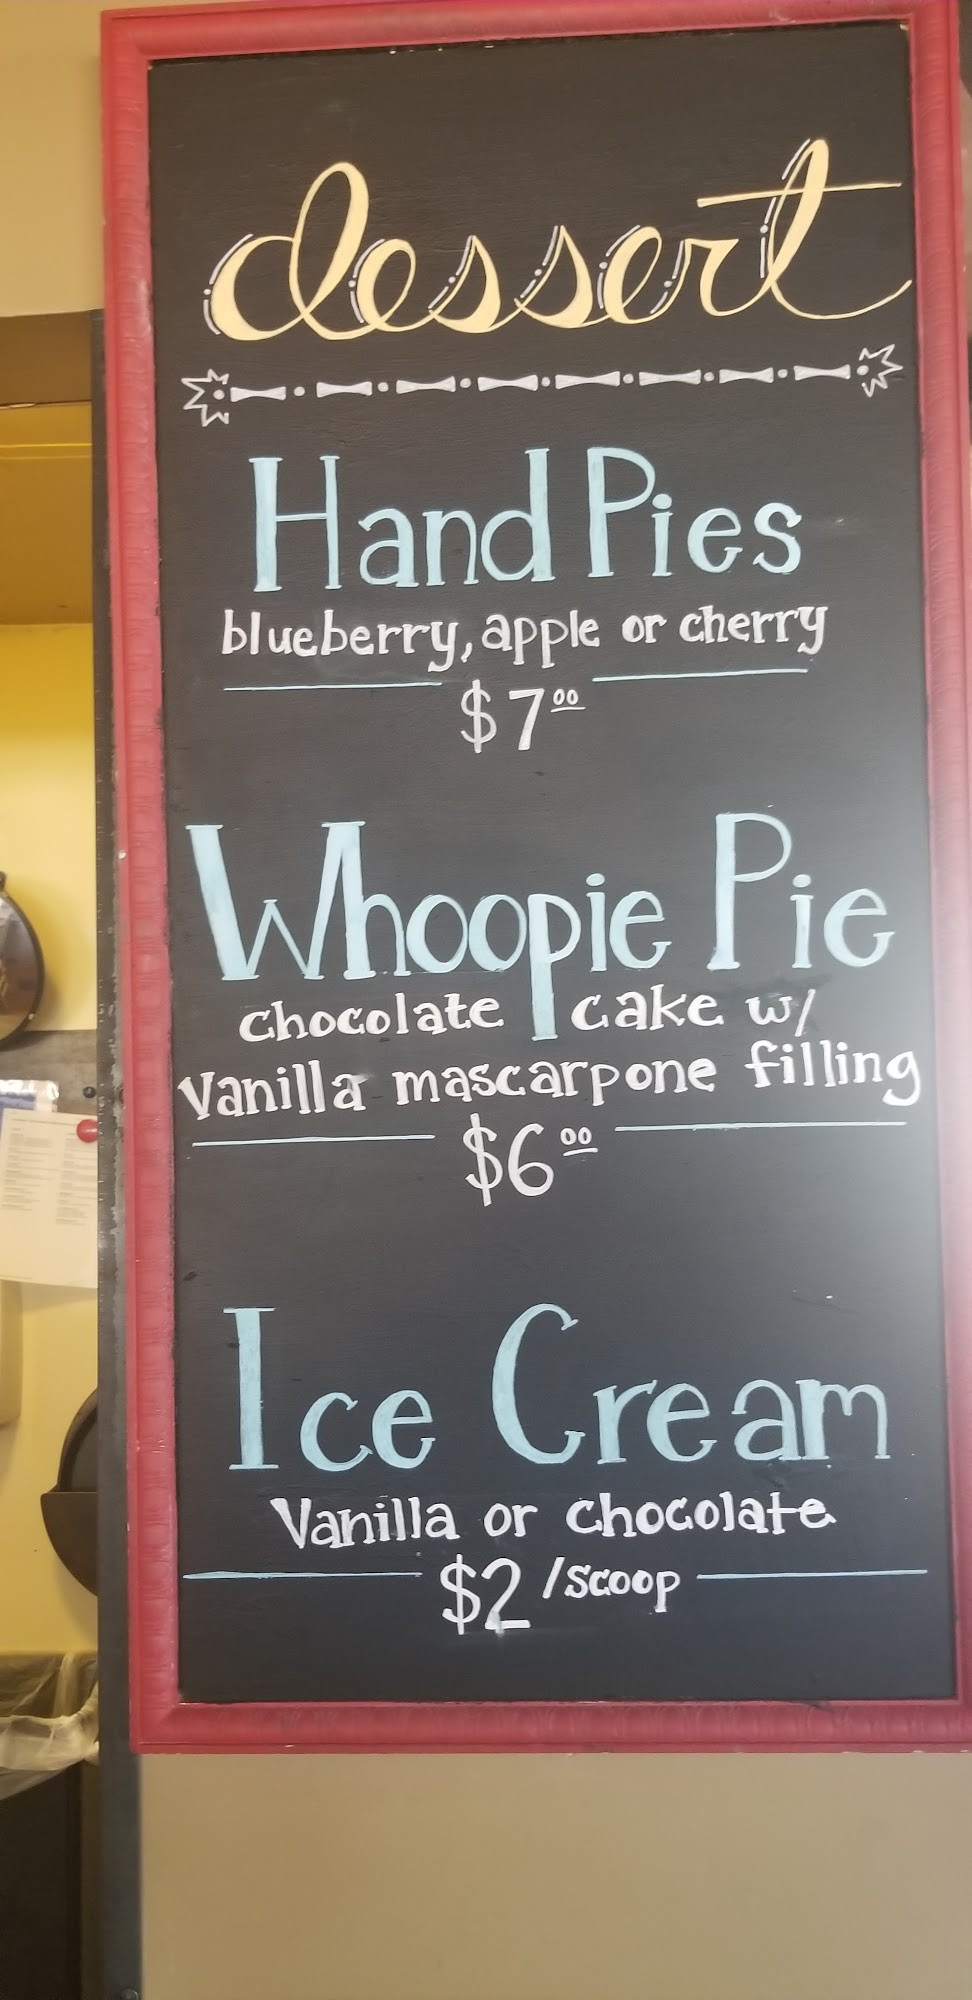 dessert
Hand Pies
blueberry, apple or cherry
$7.00
Whoopie Pie
chocolate cake w/
Vanilla mascarpone filling
$6.00
Ice Cream
Vanilla or chocolate
$2/scoop